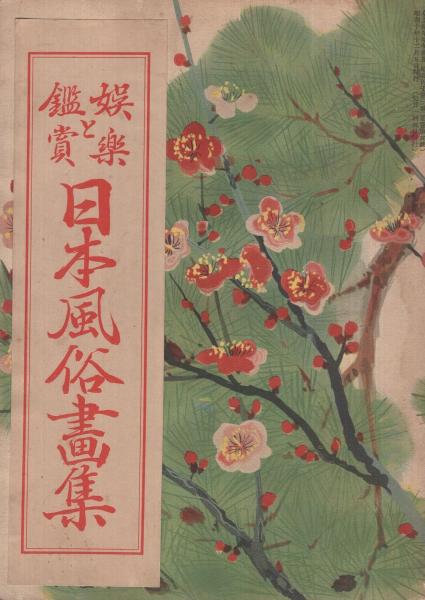 娯樂
と
鑑賞
日本風俗畫集